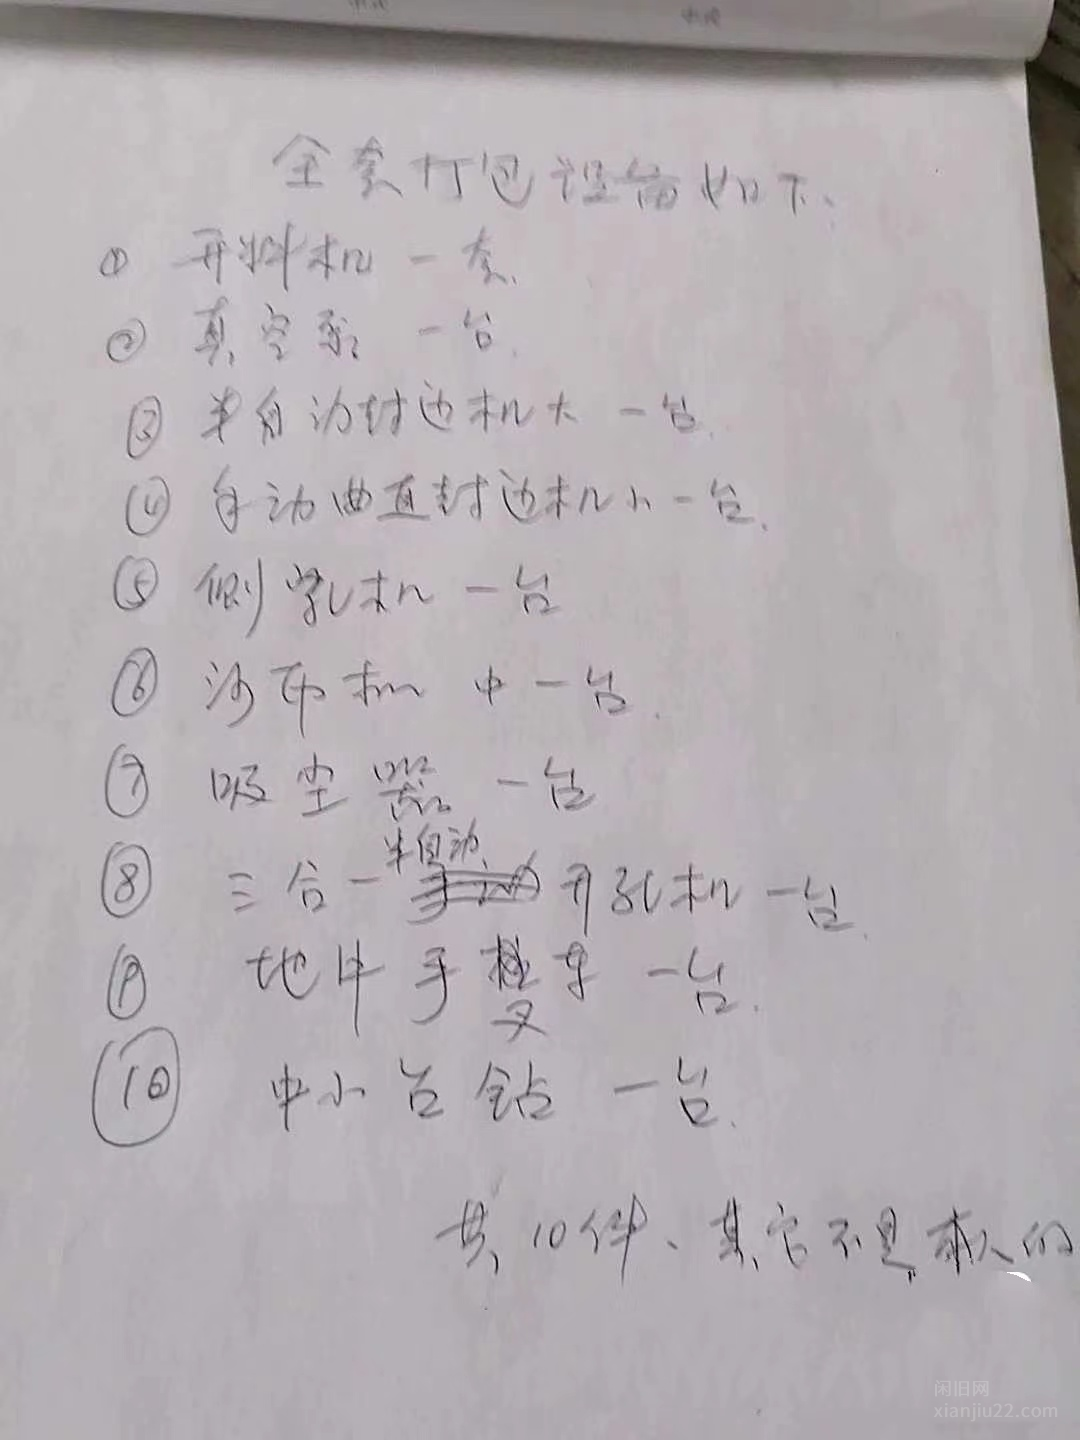 全套打包设备如下、
① 开料机 一套.
② 真空泵 一台.
③ 半自动封边机大 一台.
④ 自动曲直封边机小一台.
⑤ 侧孔机 一台
⑥ 沙布机 中一台.
⑦ 吸尘器 一台
半自动、
⑧ 三合一 开孔机 一台.
⑨ 地牛手 车 一台.
叉
⑩ 中小台钻 一台.
共10件、其它不是本人的
闲旧网
xianjiu22.com